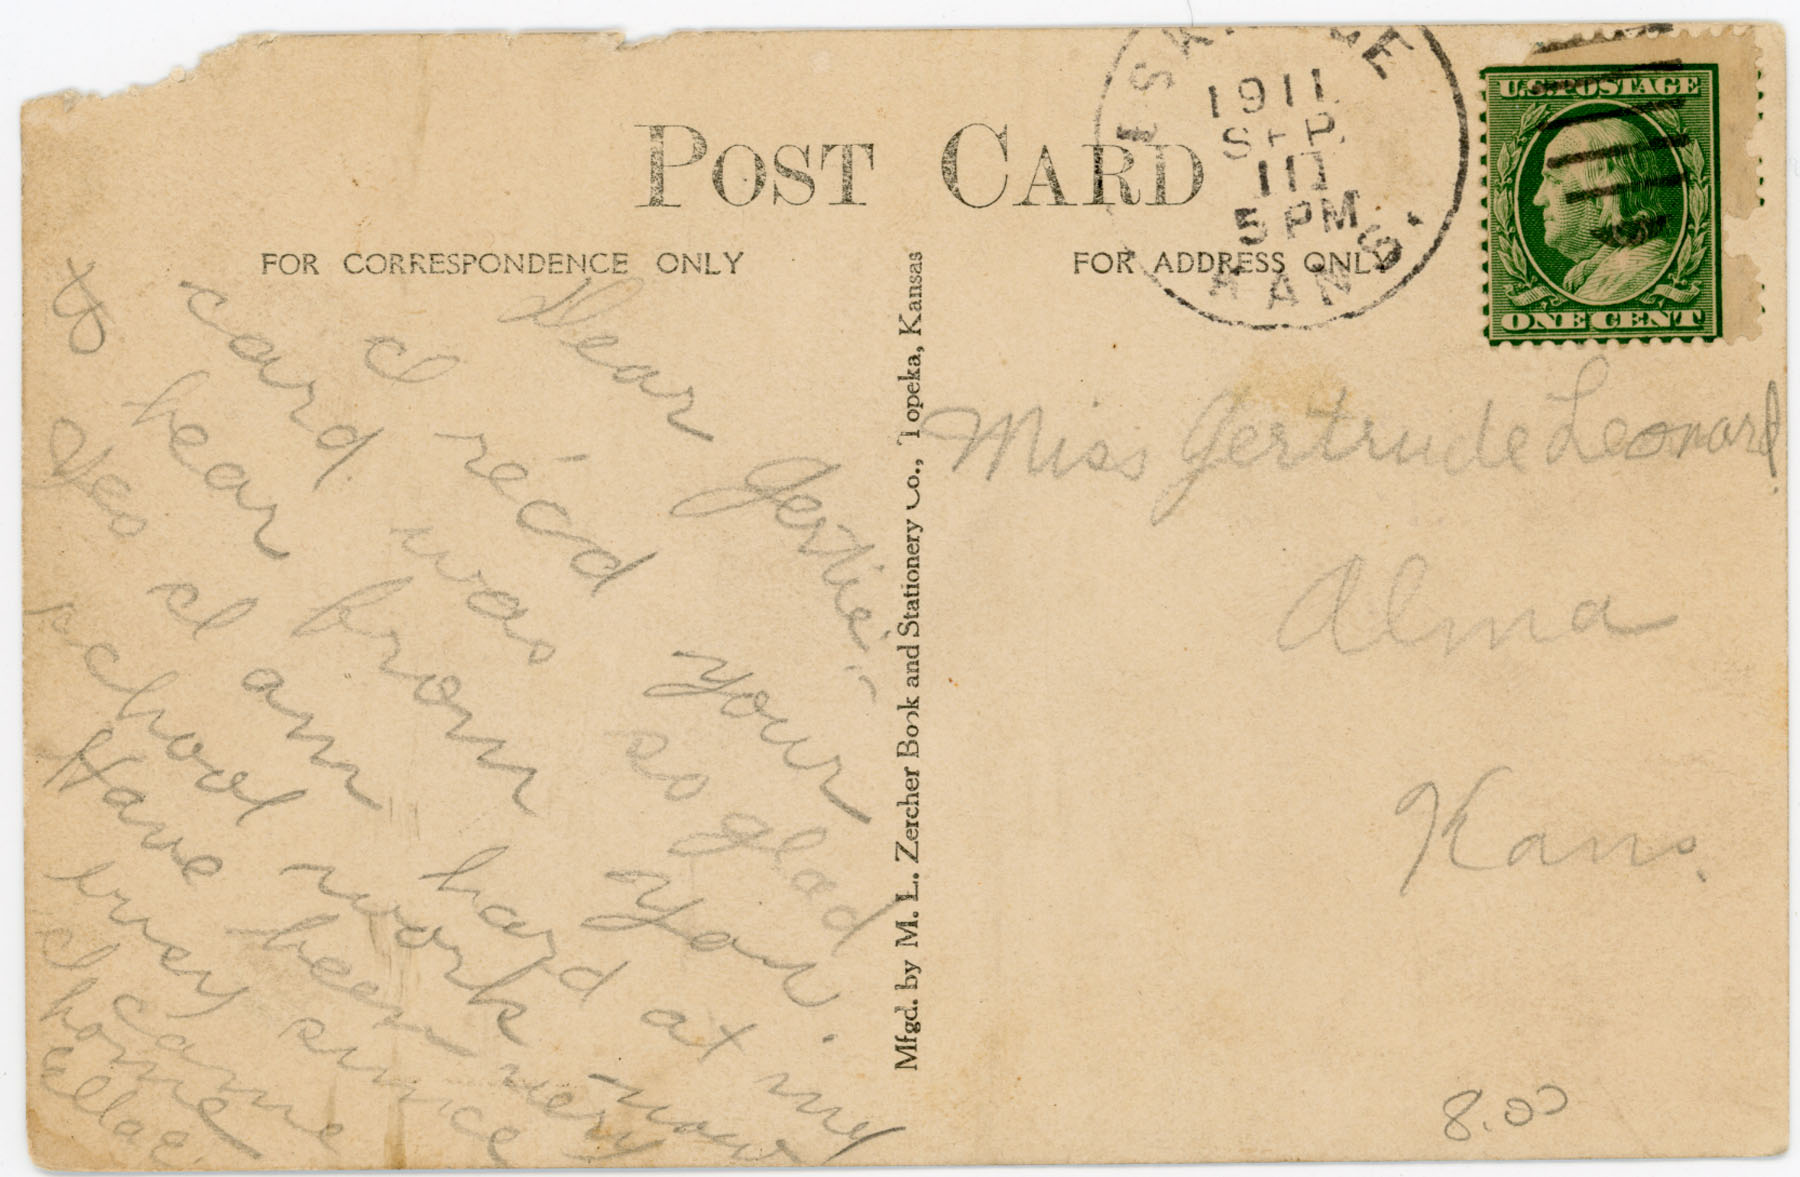 POST CARD
FOR CORRESPONDENCE ONLY
Dear Gertie:-
I rec'd your
card was so glad
to hear from you.
Yes I am hard at my
school work now
Have been very
busy since
I came
home
Mfgd. by M. L. Zercher Book and Stationery Co., Topeka, Kansas
FOR ADDRESS ONLY
1911
SEP
5 PM
KANS.
U.S. POSTAGE
ONE CENT
Miss Gertrude Leonard
Alma
Kans.
8.00